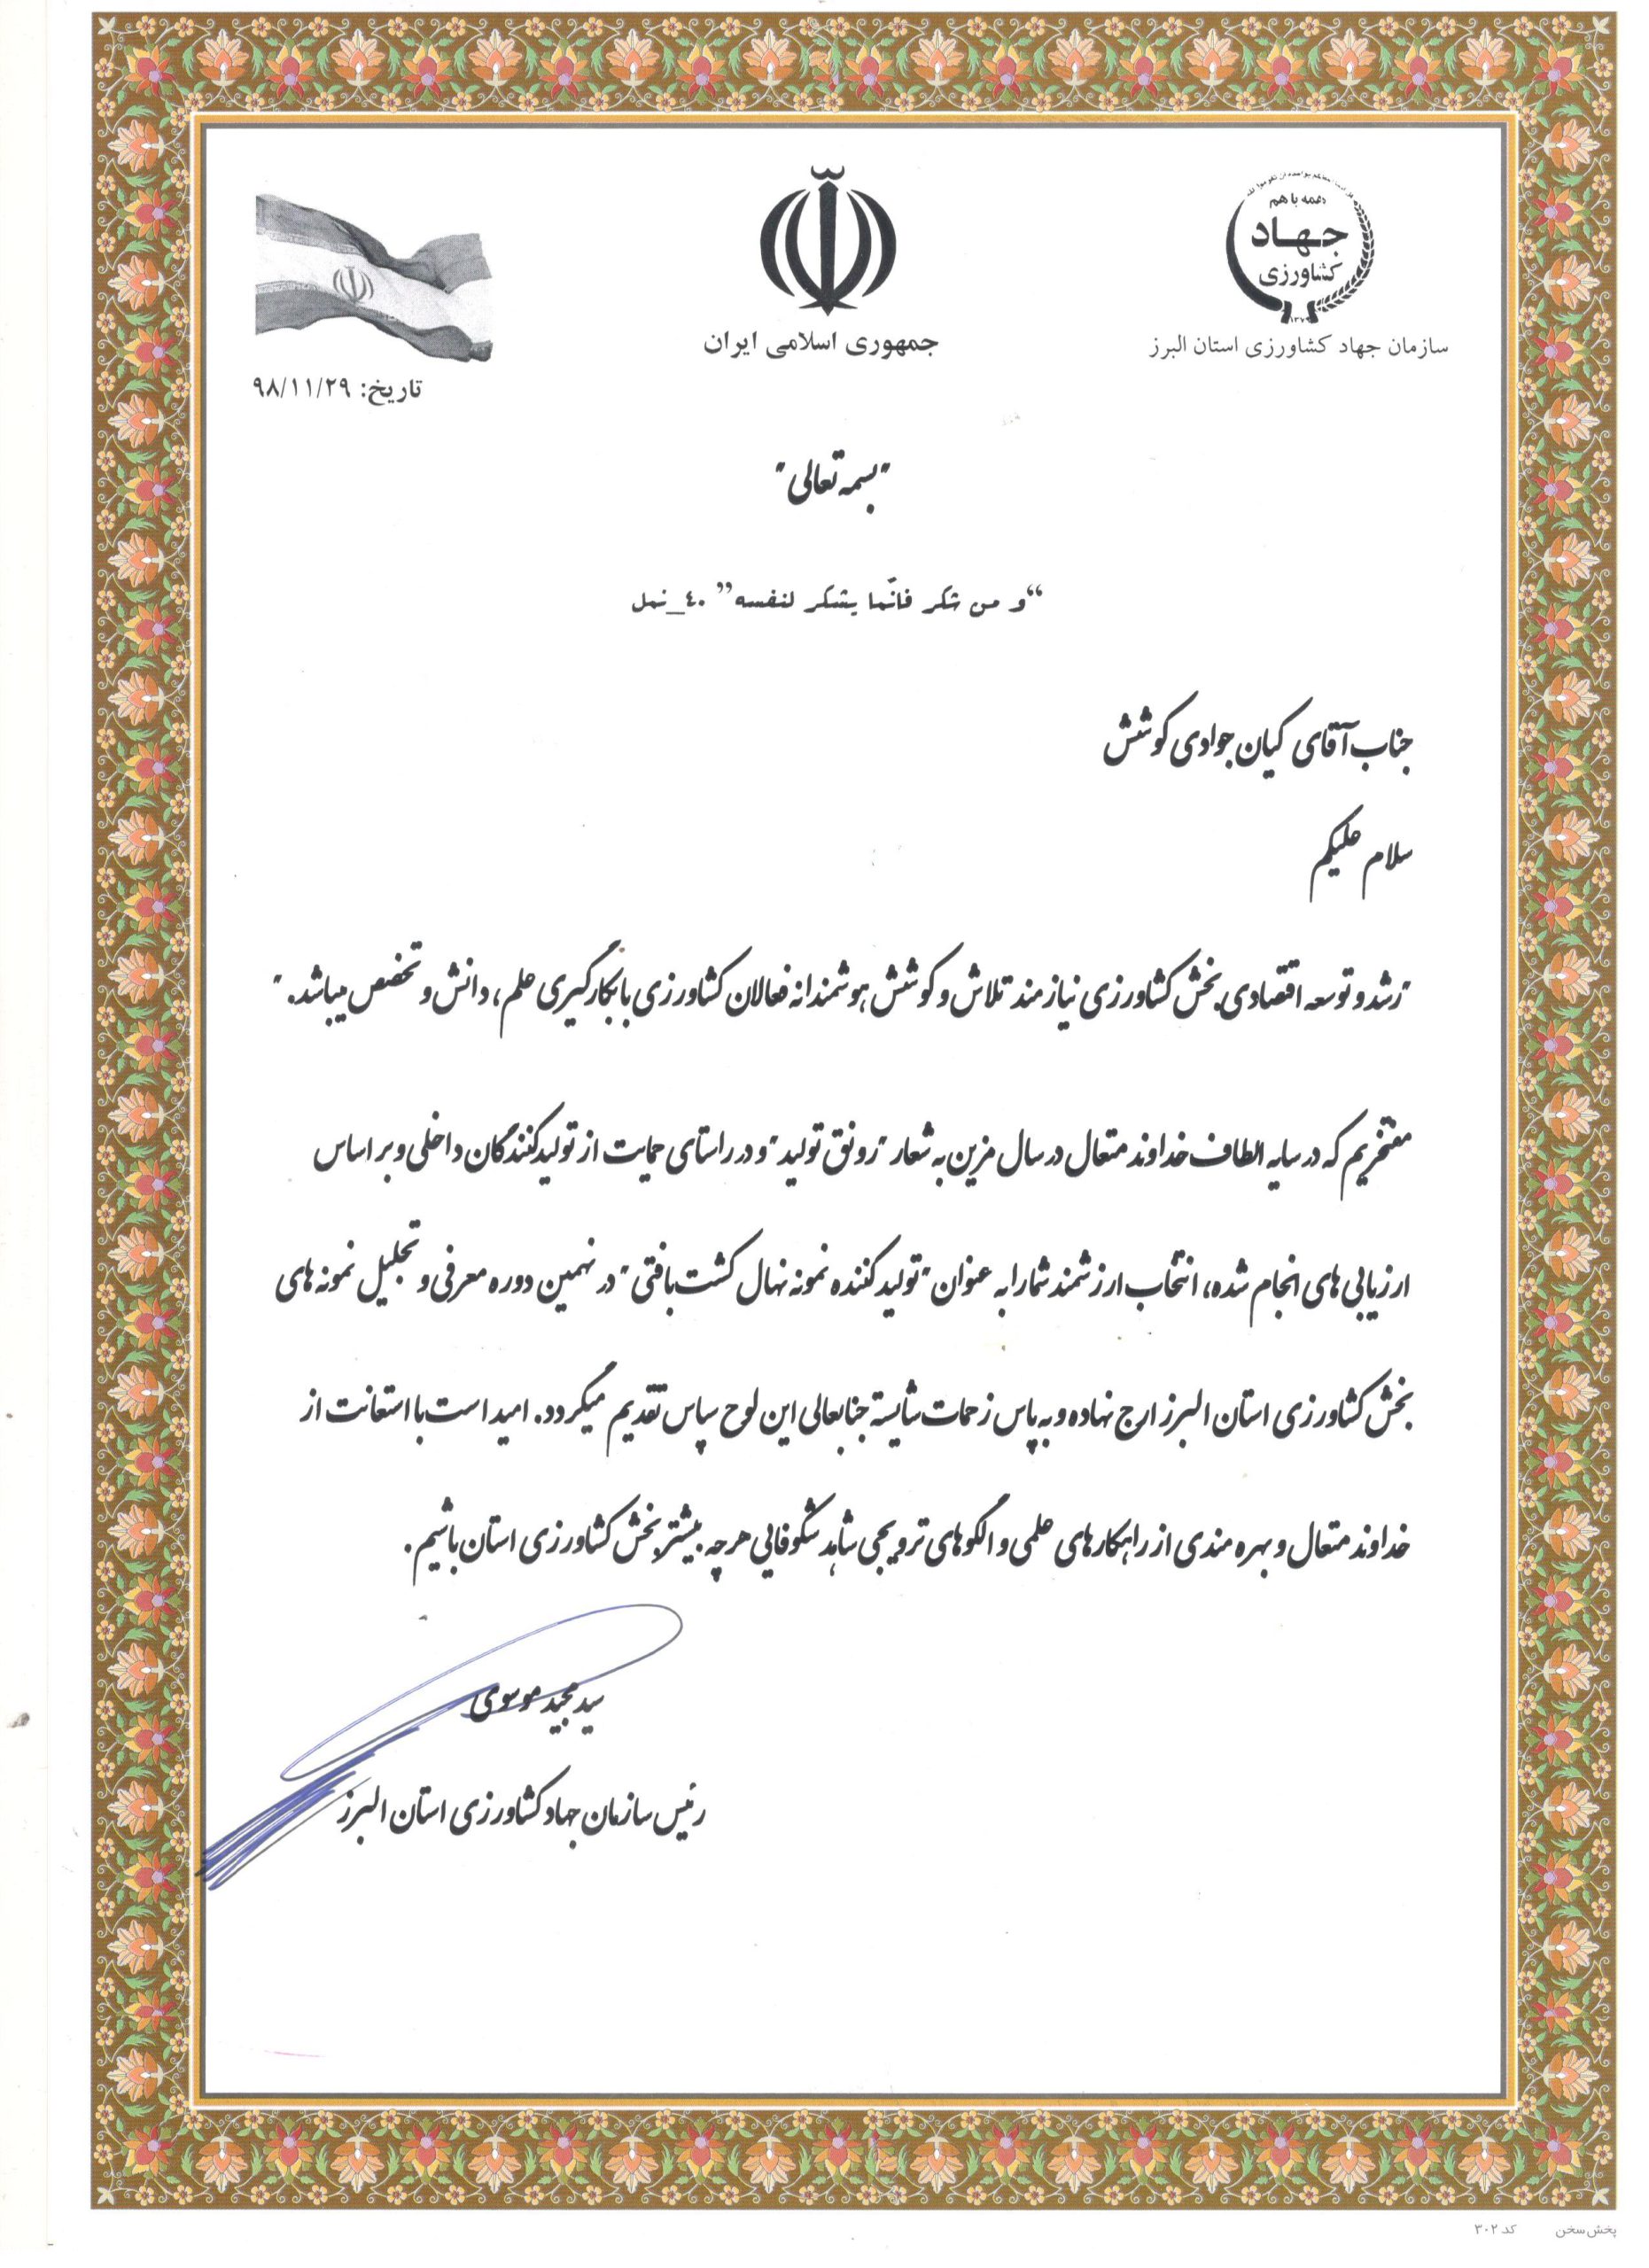 همه با هم
جهاد
کشاورزی
۱۳۷۹
سازمان جهاد کشاورزی استان البرز
جمهوری اسلامی ایران
تاریخ: ۹۸/۱۱/۲۹
"بسمه تعالی"
“و من شکر فانّما یشکر لنفسه” ٤٠_نمل
جناب آقای کیان جوادی کوشش
سلام علیکم
"رشد و توسعه اقتصادی بخش کشاورزی نیازمند تلاش و کوشش هوشمندانه فعالان کشاورزی با بکارگیری علم، دانش و تخصص میباشد."
مفتخریم که در سایه الطاف خداوند متعال در سال مزین به شعار "رونق تولید" و در راستای حمایت از تولیدکنندگان داخلی و بر اساس
ارزیابی های انجام شده، انتخاب ارزشمند شما را به عنوان "تولید کننده نمونه نهال کشت بافتی" در نهمین دوره معرفی و تجلیل نمونه های
بخش کشاورزی استان البرز ارج نهاده و به پاس زحمات شایسته جنابعالی این لوح سپاس تقدیم میگردد. امید است با استعانت از
خداوند متعال و بهره مندی از راهکارهای علمی و الگوهای ترویجی شاهد شکوفایی هرچه بیشتر بخش کشاورزی استان باشیم.
سید مجید موسوی
رئیس سازمان جهاد کشاورزی استان البرز
پخش سخن کد ۳۰۲